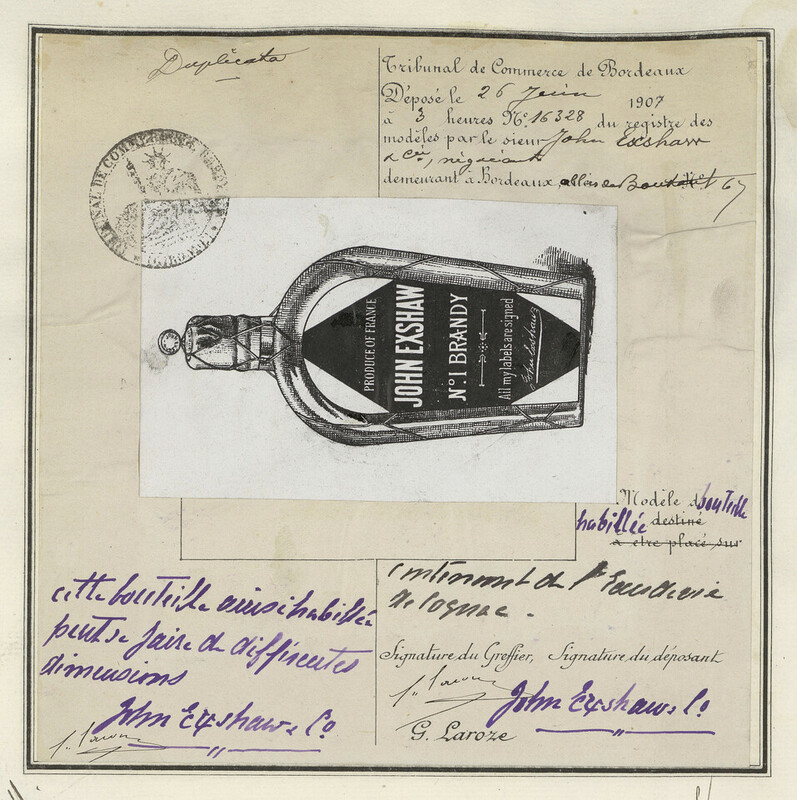 Duplicata
Tribunal de Commerce de Bordeaux
Déposé le 26 Juin 1907
à 3 heures N° 16328 du registre des
modèles par le sieur John Exshaw
& Cie, négociant
demeurant à Bordeaux, allées de Boutaut 67
TRIBUNAL DE COMMERCE
PRODUCE OF FRANCE
JOHN EXSHAW
N°1 BRANDY
All my labels are signed
John Exshaw
Modèle de bouteille
habillée destiné
à être placé sur
contenant de l'Eau de vie
de Cognac.
cette bouteille ainsi habillée
peut se faire de différentes
dimensions
John Exshaw & Co
Signature du Greffier, Signature du déposant
John Exshaw & Co
G. Laroze